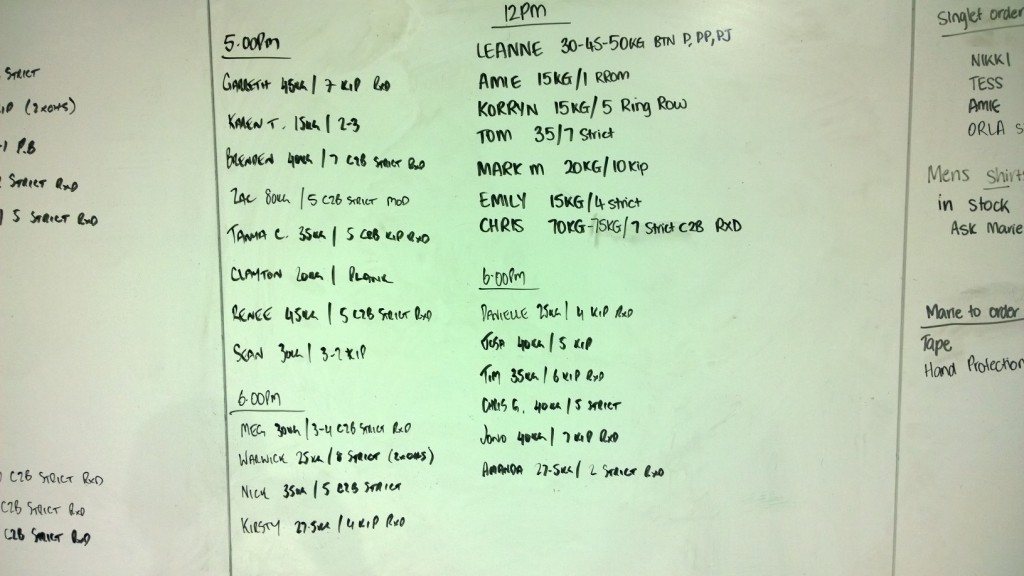 STRICT
(2xOHS)
P.B
STRICT RxD
5 STRICT RxD
C2B STRICT RxD
C2B STRICT RxD
C2B STRICT RxD
5.00pm
GARBETH 45KG / 7 KIP RxD
KAREN T. 15KG / 2-3
BRENDEN 40KG / 7 C2B STRICT RxD
ZAC 80KG / 5 C2B STRICT MOD
TANYA C. 35KG / 5 C2B KIP RxD
CLAYTON 20KG / PLANK
RENEE 45KG / 5 C2B STRICT RxD
SEAN 30KG / 3-2 KIP
6.00pm
MEG 30KG / 3-4 C2B STRICT RxD
WARWICK 25KG / 8 STRICT (2xOHS)
NICK 35KG / 5 C2B STRICT
KIRSTY 27.5KG / 4 KIP RxD
12pm
LEANNE 30-45-50KG BTN P, PP, PJ
AMIE 15KG/1 RROM
KORRYN 15KG/5 Ring Row
TOM 35/7 Strict
MARK M 20KG/10 Kip
EMILY 15KG/4 Strict
CHRIS 70KG-75KG/7 Strict C2B RXD
6.00pm
DANIELLE 25KG / 4 KIP RxD
40KG / 5 KIP
TIM 35KG / 6 KIP RxD
CHRIS G. 40KG / 5 STRICT
JONO 40KG / 7 KIP RxD
AMANDA 27.5KG / 2 STRICT RxD
Singlet order
NIKKI
TESS
AMIE
ORLA S
Mens Shirts
in stock
Ask Marie
Marie to order
Tape
Hand Protection